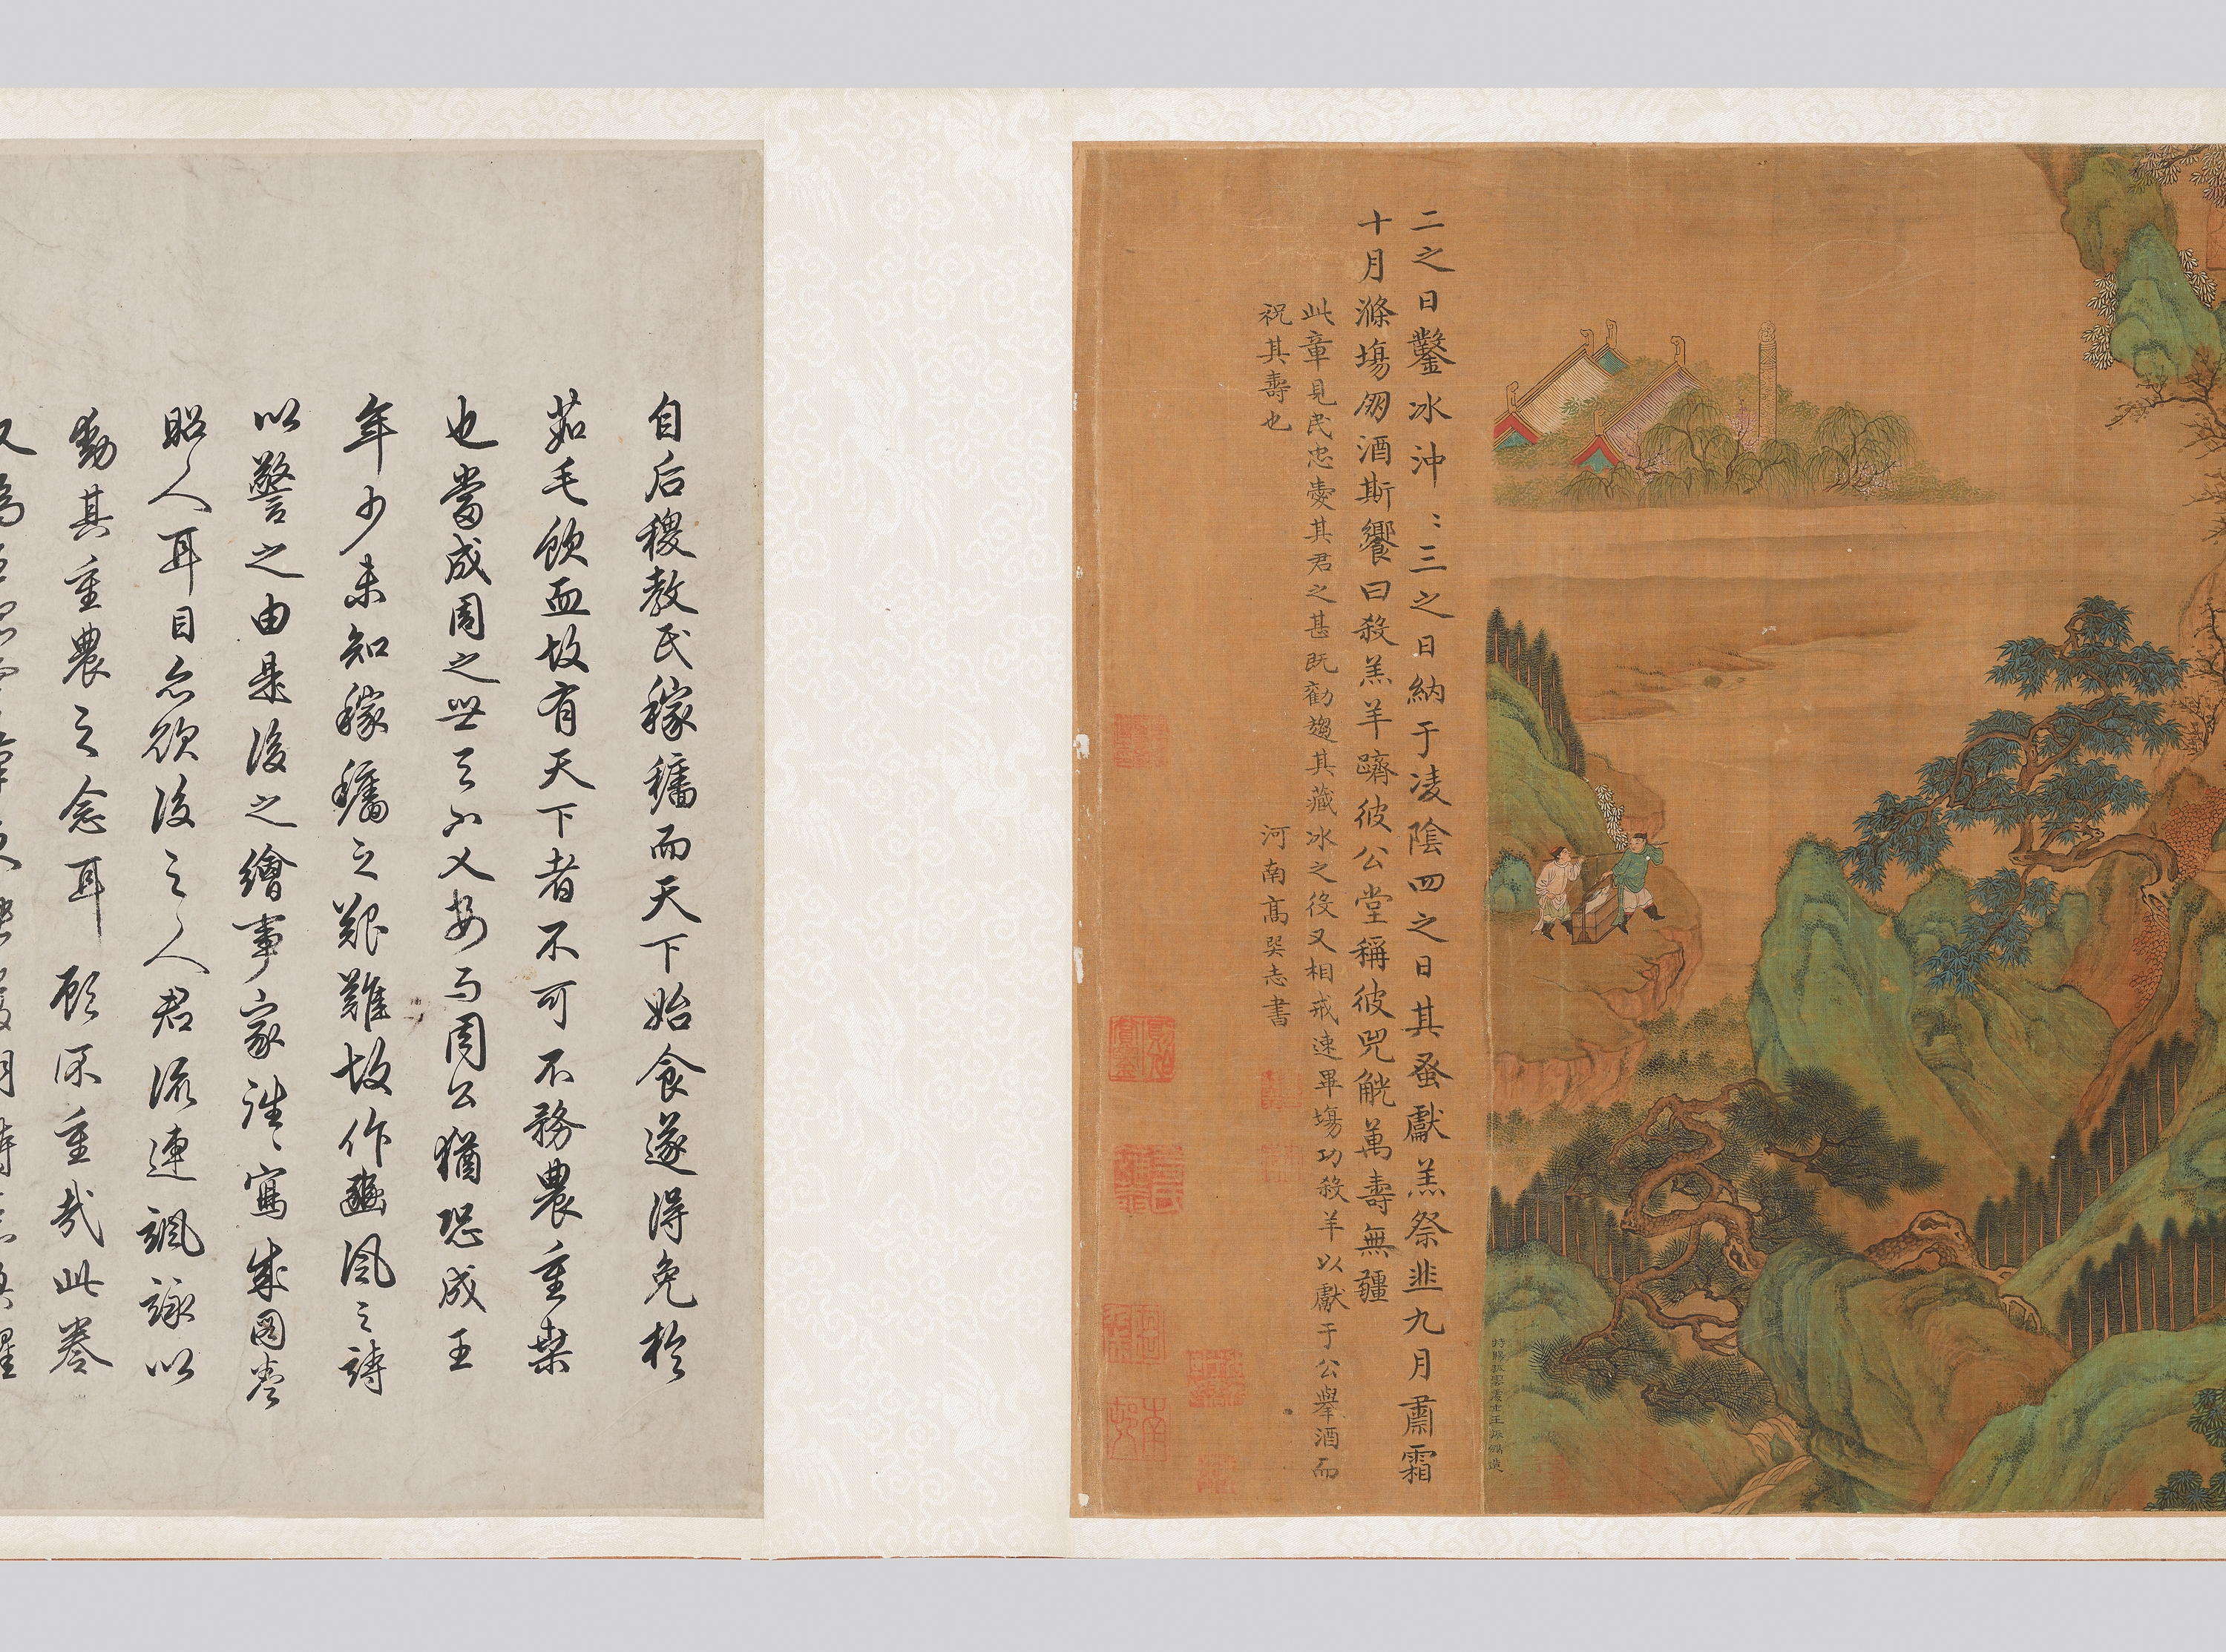 特賜孤雲處士王振鵬造
二之日鑿冰沖〻三之日納于凌陰四之日其蚤獻羔祭韭九月肅霜
十月滌場朋酒斯饗曰殺羔羊躋彼公堂稱彼兕觥萬壽無疆
此章見民忠愛其君之甚既勸趨其藏冰之役又相戒速畢場功殺羊以獻于公舉酒而
祝其壽也 河南高巽志書
自后稷教民稼穡而天下始食遂得免於
茹毛飲血故有天下者不可不務農重桑
也當成周之世天下乂安而周公猶恐成王
年少未知稼穡之艱難故作豳風之詩
以警之由是後之繪事家往〻寫成圖卷
昭人耳目亦欲後之人君流連諷詠以
動其重農之念耳 顧深重哉此卷